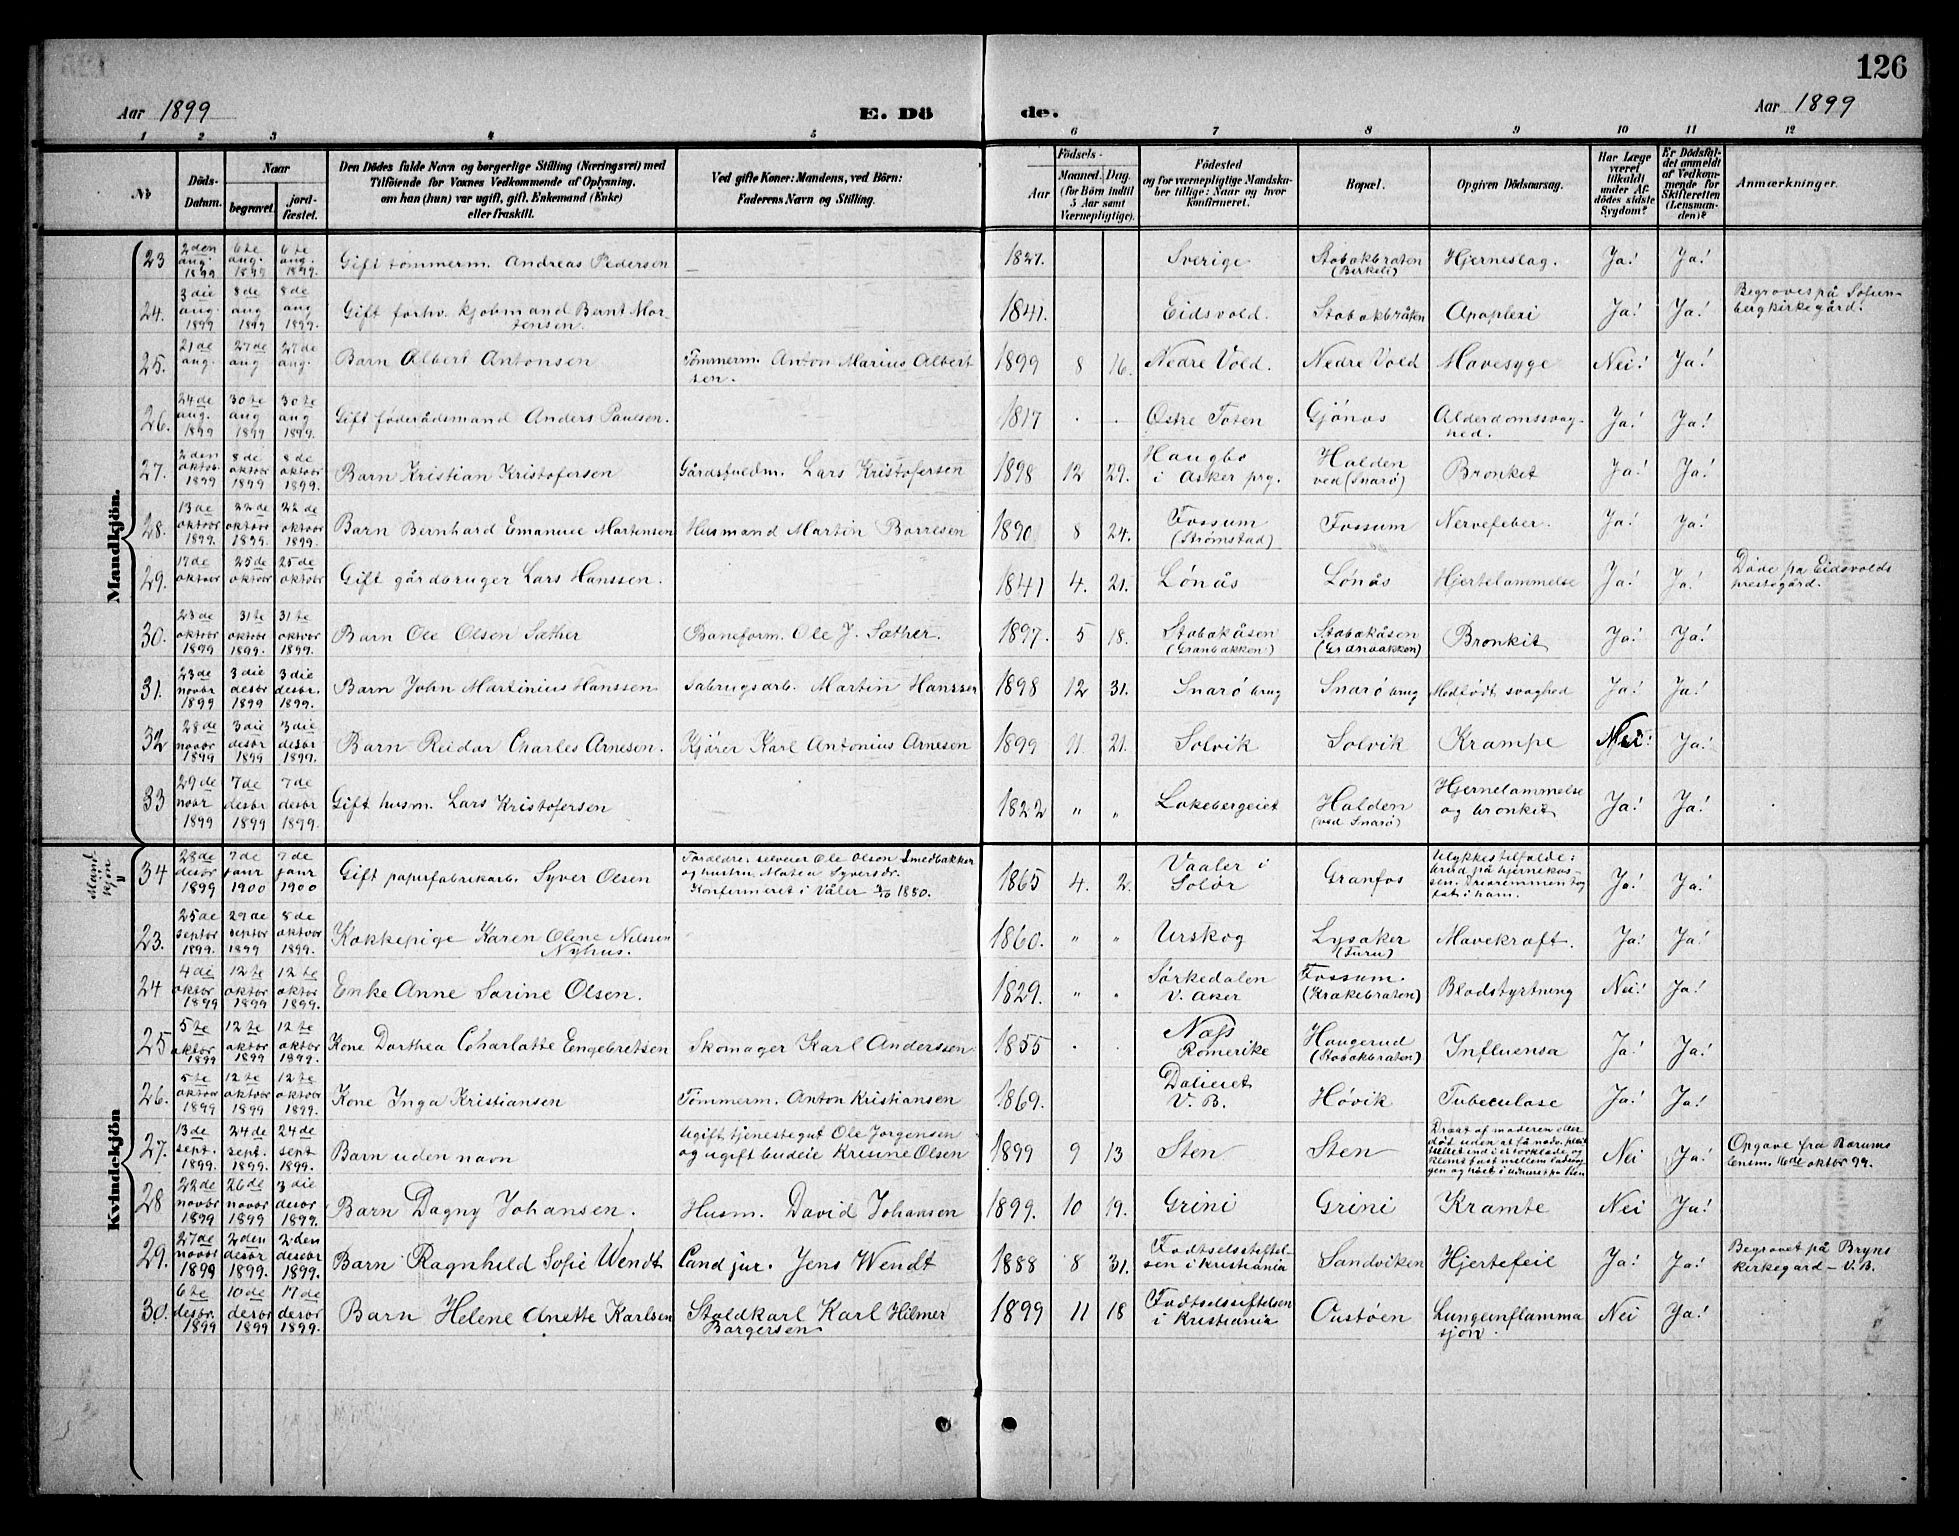 126
Aar 1899
E. Dö
de.
Aar 1899
1 2 3 4 5 6 7 8 9 10 11 12
№
Döds-
Datum.
Naar
begravet.
jord-
fæstet.
Den Dödes fulde Navn og borgerlige Stilling (Næringsvei) med
Tilföiende for Voxnes Vedkommende af Oplysning,
om han (hun) var ugift, gift, Enkemand (Enke)
eller fraskilt.
Ved gifte Koner: Mandens, ved Börn:
Faderens Navn og Stilling.
Aar
Födsels-
Maaned. Dag.
(for Börn indtil
5 Aar samt
Værnepligtige).
Födested
og for værnepligtige Mandska-
ber tillige: Naar og hvor
konfirmeret.
Bopæl.
Opgiven Dödsaarsag.
Har Læge
været
tilkaldt
under Af-
dödes sidste
Sygdom?
Er Dödsfal-
det anmeldt
af Vedkom-
mende for
Skifteretten
(Lensman-
den)?
Anmærkninger.
Mandkjön.
23 2den aug. 1899 6te aug. 1899 6te aug. 1899. Gift tömmerm. Andreas Pedersen — 1827. Sverige Stabækbraten (Birkeli) Hjerneslag. Ja! Ja!
24. 3die aug. 1899 8de aug 1899 8de aug 1899. Gift forhv. kjøbmand Bernt Mor-
tensen. 1841. Eidsvold. Stabækbråten Apoplexi Ja! Ja! Begroves på Sofien-
bergkirkegård.
25. 21de aug. 27de aug 27de aug. Barn Albert Antonsen Tömmerm. Anton Marius Albert
sen. 1899 8 16. Nedre Vold. Nedre Vold Mavesyge Nei! Ja!
26. 24de aug. 1899 30te aug 1899 30te aug 1899. Gift føderådsmand Anders Paulsen. 1817 Østre Toten Gjønas Alderdomssvag-
hed. Ja! Ja!
27. 2den oktob. 1899 8de oktobr 1899 8de oktobr 1899. Barn Kristian Kristofersen Gårdsfuldm. Lars Kristofersen 1898 12 29. Haugbo
i Asker prg. Halden
ved (Snarø) Bronkit Ja! Ja!
28. 13de oktobr 1899. 22de oktobr 1899. 22de oktobr 1899. Barn Bernhard Emanuel Martensen Husmand Martin Borresen 1890 8 24. Fossum
(Strømstad) Fossum Nervefeber. Ja! Ja!
29. 17de oktobr 25de oktobr 25de oktobr Gift gårdbruger Lars Hanssen. 1841 4. 21. Lønås Lønås Hjertelammelse Ja! Ja! Døde pa Eidsvolds
prestegård.
30. 23de oktobr 1899 31te oktobr 1899. 31te oktobr 1899. Barn Ole Olsen Sæther Baneform. Ole J. Sæther. 1897. 5 18. Stabækåsen
(Granbakken) Stabækåsen
(Granbakken) Bronkit Ja! Ja!
31. 23de novbr 1899 3die desbr 1899 3die desbr. 1899. Barn John Martinius Hanssen Fabrugsarb. Martin Hanssen 1898 12 31. Snarø brug Snarø brug Medfødt svaghed Ja! Ja!
32 28de novbr 1899 3die desbr 1899 3die desbr 1899. Barn Reidar Charles Arnesen. Kjører Karl Antonius Arnesen 1899 11. 21. Solvik Solvik Krampe Nei! Ja!
33 29de novbr 1899 7de desbr 1899 7de desbr 1899. Gift husm. Lars Kristofersen 1822 " " Lakebergeiet Halden
(ved Snarø) Hjernelammelse
og bronkit Ja! Ja!
Mand
kjøn
34 28de desbr 1899 7de janr 1900 7de janr 1900 Gift papirfabrikarb. Syver Olsen Forældre: selveier Ole Olson Smedbakken
og hustru Matea Syversdr.
Konfirmeret i Våler 3/10 1880. 1865 4. 2. Vaaler i
Solør Granfos Ulykkestilfælde:
brud på hjerneka-
sen. Drivremmen tog
fat i ham. Ja! Ja!
Kvindekjön
23. 25de septbr 1899. 29de septbr 1899 8de oktobr 1899. Kokkepige Karen Oline Nilssen
Nyhus. 1860. " " Urskog Lysaker
(Furu) Mavekræft. Ja! Ja!
24 4di oktbr 1899 12te oktbr 1899 12te oktbr 1899. Enke Anne Sorine Olsen. 1829. " " Sørkedalen
V. Aker Fossum.
(Krakebraten) Blodstyrtning Nei! Ja!
25 5te oktbr 1899 12te oktbr 1899 12te oktbr 1899. Kone Dorthea Charlatte Engebretsen Skomager Karl Anderssen 1855 Næss
Romerike Haugerud
(Stabækbraten) Influensa Ja! Ja!
26. 5te oktobr 1899 12te oktobr 1899 12te oktobr 1899. Kone Inga Kristiansen Tømmerm. Anton Kristiansen 1869. Dalieiet
V. B. Høvik Tubeculose Ja! Ja!
27. 13de sept. 1899. 24de sept. 1899. 24de sept 1899. Barn uden navn Ugift tjenestegut Ole Jorgensen
og ugift budeie Kristine Olsen 1899 9 13 Sten Sten Dræbt af moderen eller
død uden at få nødv. pleie
Nei Ja! Opgave fra Bærums
lensm. 16de oktbr 99.
28 22de novbr 1899 26de novbr 1899 3die desbr 1899. Barn Dagny Johansen. Husm. David Johansen 1899. 10 19. Grini Grini Krampe Nei Ja!
29. 27de novbr 1899 2den desbr 1899. 2den desebr 1899. Barn Ragnhild Sofie Wendt Cand jur. Jens Wendt 1888 8 31. Fødselsstiftel-
sen i Kristiania Sandviken Hjertefeil Ja! Ja! Begravet på Bryns
kirkegård – V. B.
30. 6te desbr. 1899 10de desbr 1899 17de desbr 1899. Barn Helene Anette Karlsen Staldkarl Karl Hilmer
Borgersen 1899 11 18 Fødselsstiftelsen
i Kristiania Oustøen Lungeinflamma
sjon. Nei Ja!